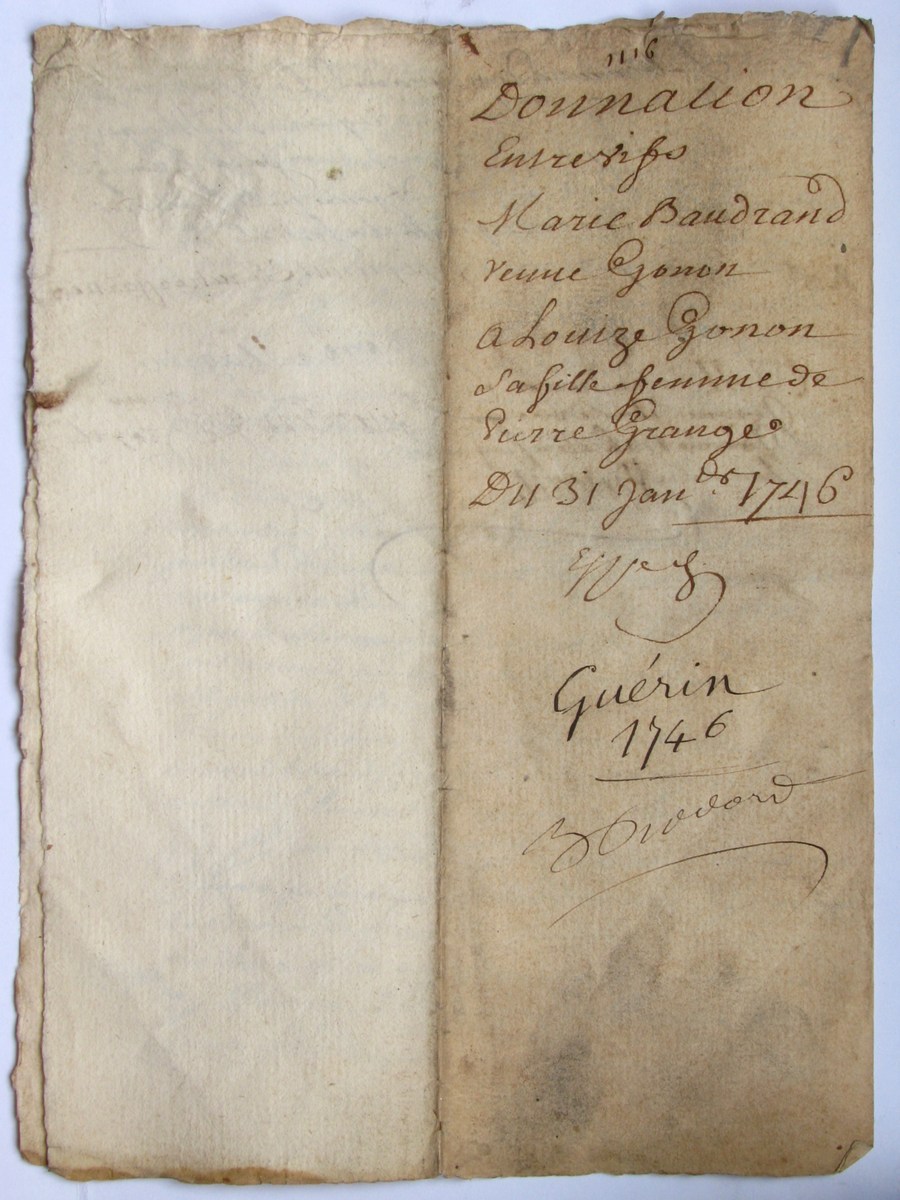 1116
Donnation
Entrevifs
Marie Baudrand
veuue Gonon
a Louize Gonon
Sa fille femme de
Pierre Grange
Du 31 Janer 1746
Guérin
1746